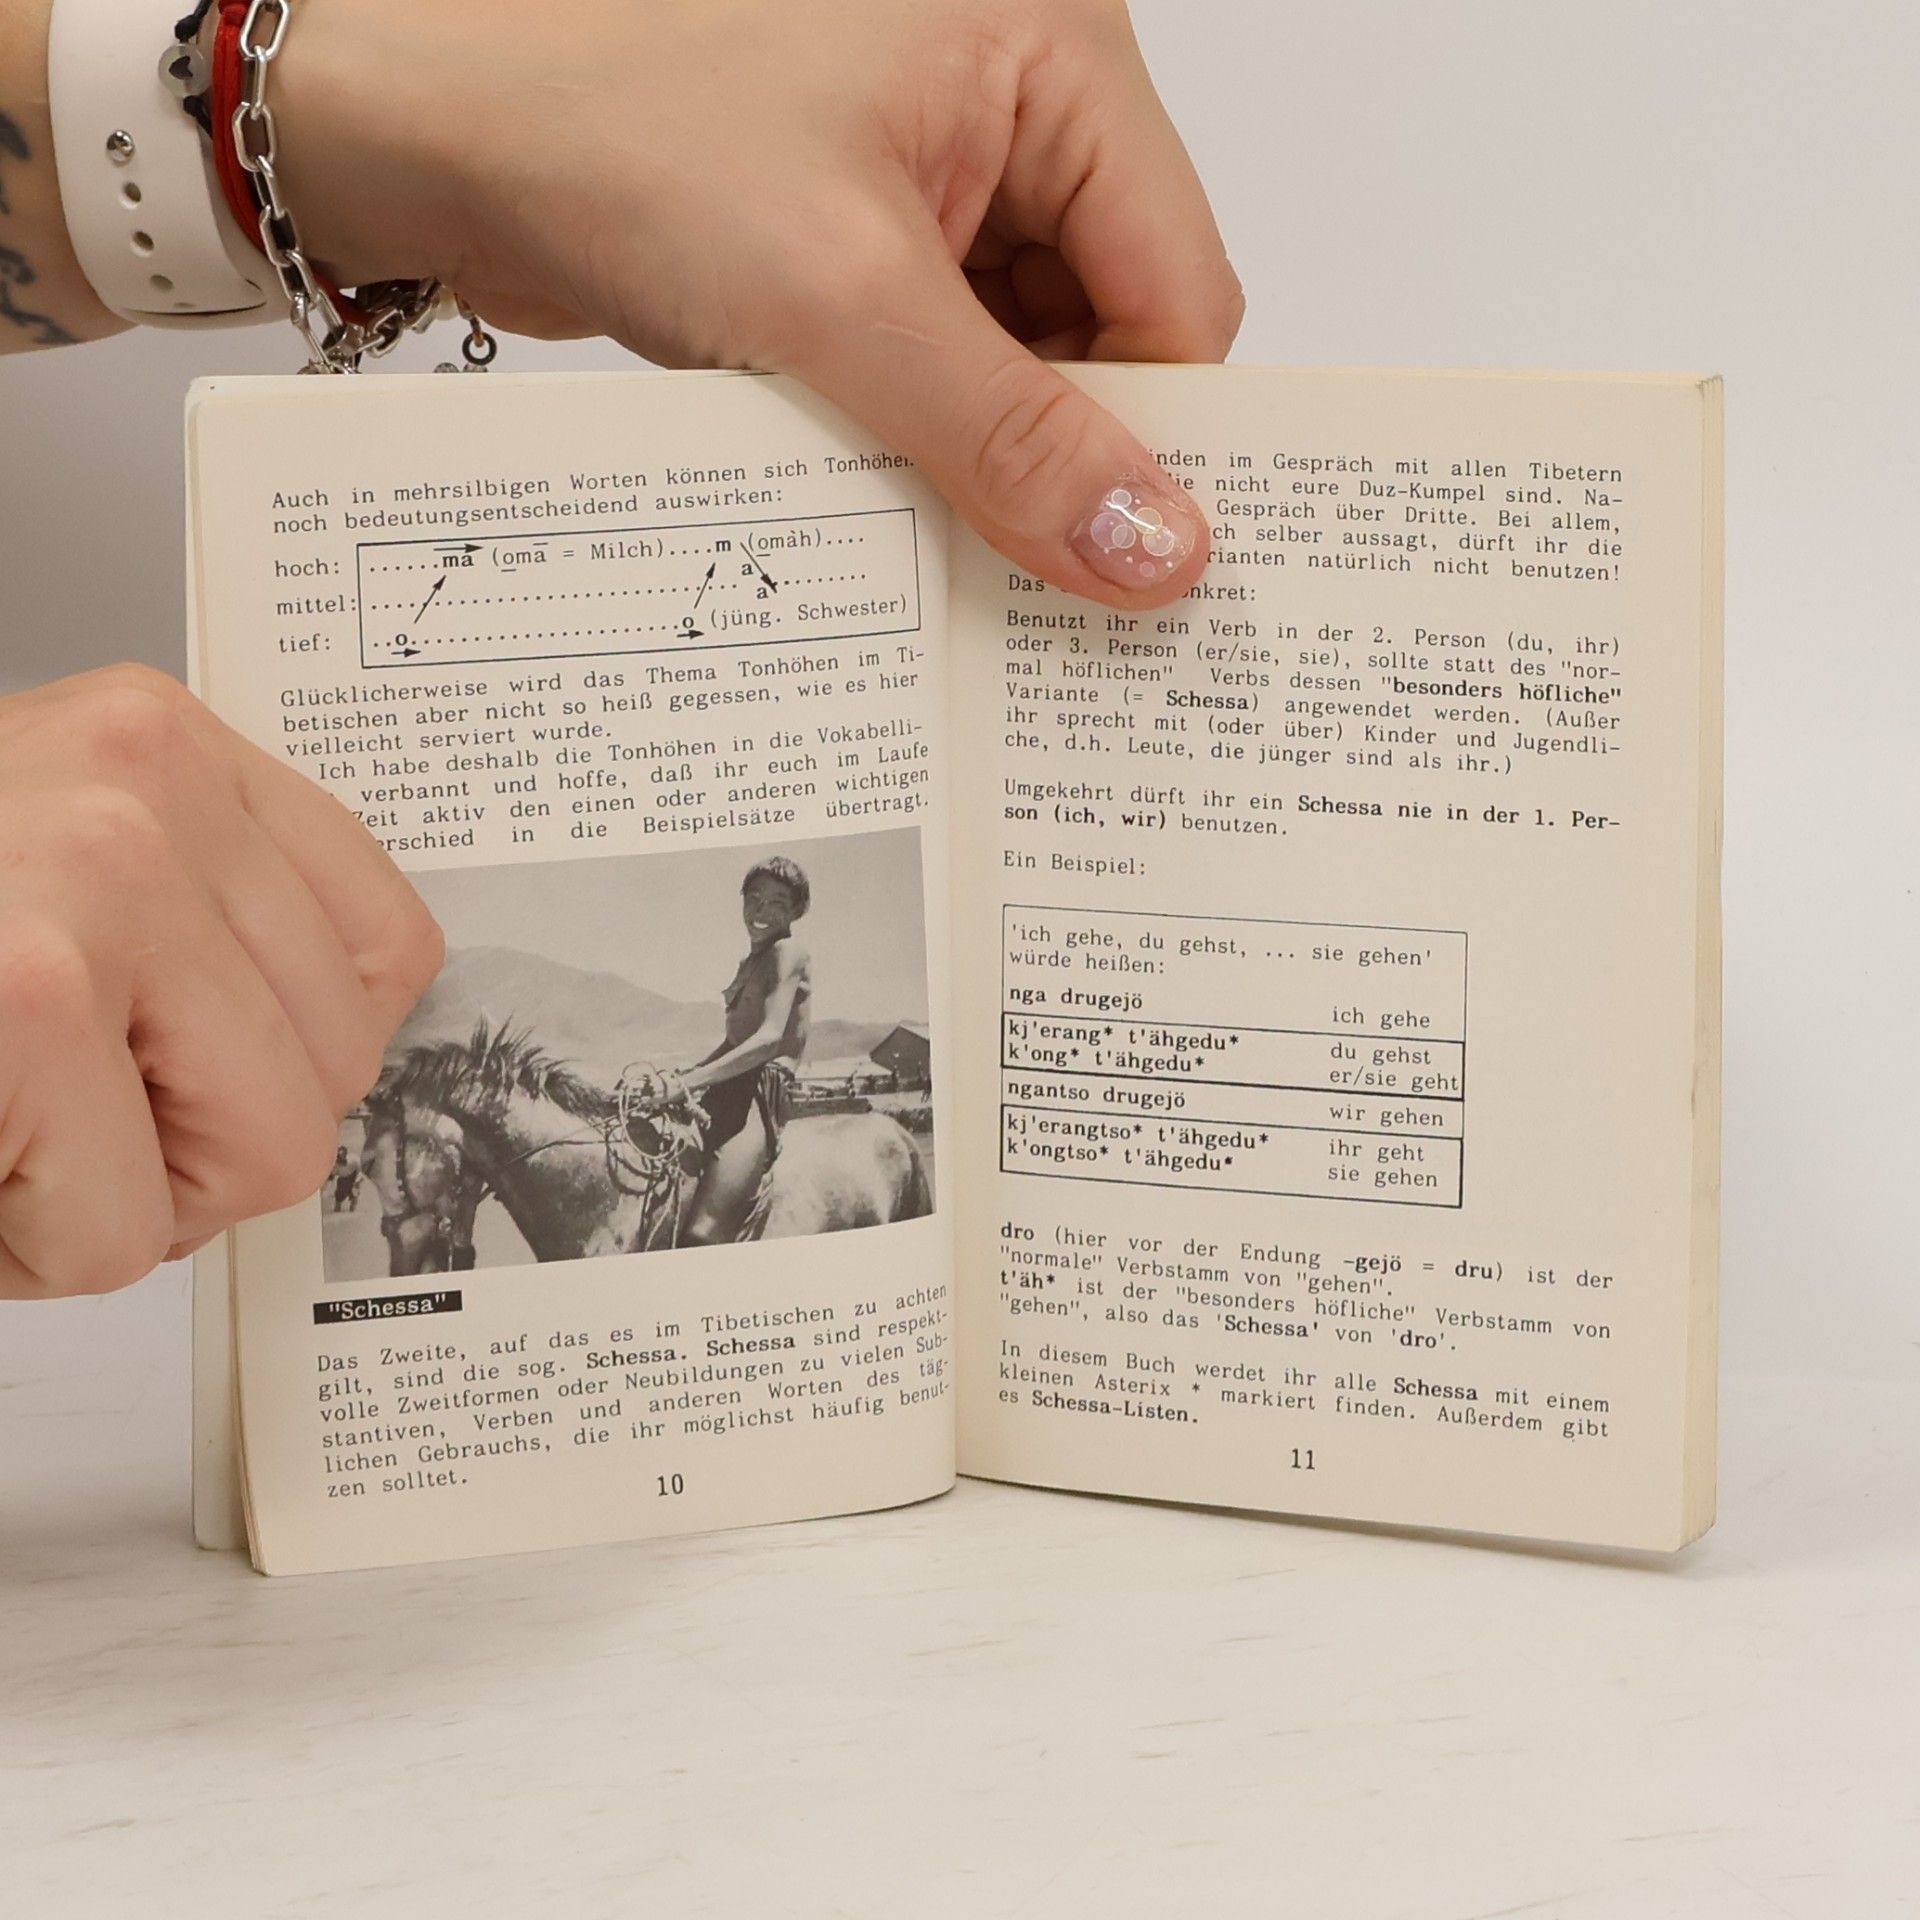 Auch in mehrsilbigen Worten können sich
noch bedeutungsentscheidend auswirken:
hoch: ......mā (omā = Milch)....m (omàh)....
mittel: a
a
tief: ..o..........o (jüng. Schwester)
Glücklicherweise wird das Thema Tonhöhen im Ti-
betischen aber nicht so heiß gegessen, wie es hier
vielleicht serviert wurde.
Ich habe deshalb die Tonhöhen in die Vokabelli-
verbannt und hoffe, daß ihr euch im Laufe
Zeit aktiv den einen oder anderen wichtigen
erschied in die Beispielsätze übertragt.
"Schessa"
Das Zweite, auf das es im Tibetischen zu achten
gilt, sind die sog. Schessa. Schessa sind respekt-
volle Zweitformen oder Neubildungen zu vielen Sub-
stantiven, Verben und anderen Worten des täg-
lichen Gebrauchs, die ihr möglichst häufig benut-
zen solltet.
10
inden im Gespräch mit allen Tibetern
ie nicht eure Duz-Kumpel sind. Na-
Gespräch über Dritte. Bei allem,
ch selber aussagt, dürft ihr die
rianten natürlich nicht benutzen!
Das nkret:
Benutzt ihr ein Verb in der 2. Person (du, ihr)
oder 3. Person (er/sie, sie), sollte statt des "nor-
mal höflichen" Verbs dessen "besonders höfliche"
Variante (= Schessa) angewendet werden. (Außer
ihr sprecht mit (oder über) Kinder und Jugendli-
che, d.h. Leute, die jünger sind als ihr.)
Umgekehrt dürft ihr ein Schessa nie in der 1. Per-
son (ich, wir) benutzen.
Ein Beispiel:
'ich gehe, du gehst, ... sie gehen'
würde heißen:
nga drugejö ich gehe
kj'erang* t'ähgedu* du gehst
k'ong* t'ähgedu* er/sie geht
ngantso drugejö wir gehen
kj'erangtso* t'ähgedu* ihr geht
k'ongtso* t'ähgedu* sie gehen
dro (hier vor der Endung -gejö = dru) ist der
"normale" Verbstamm von "gehen".
t'äh* ist der "besonders höfliche" Verbstamm von
"gehen", also das 'Schessa' von 'dro'.
In diesem Buch werdet ihr alle Schessa mit einem
kleinen Asterix * markiert finden. Außerdem gibt
es Schessa-Listen.
11